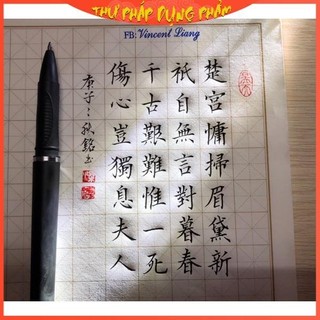 THƯ PHÁP DỤNG PHẨM
FB: Vincent Liang
楚宮慵掃眉黛新
祇自無言對暮春
千古艱難惟一死
傷心豈獨息夫人
庚子之秋銘书